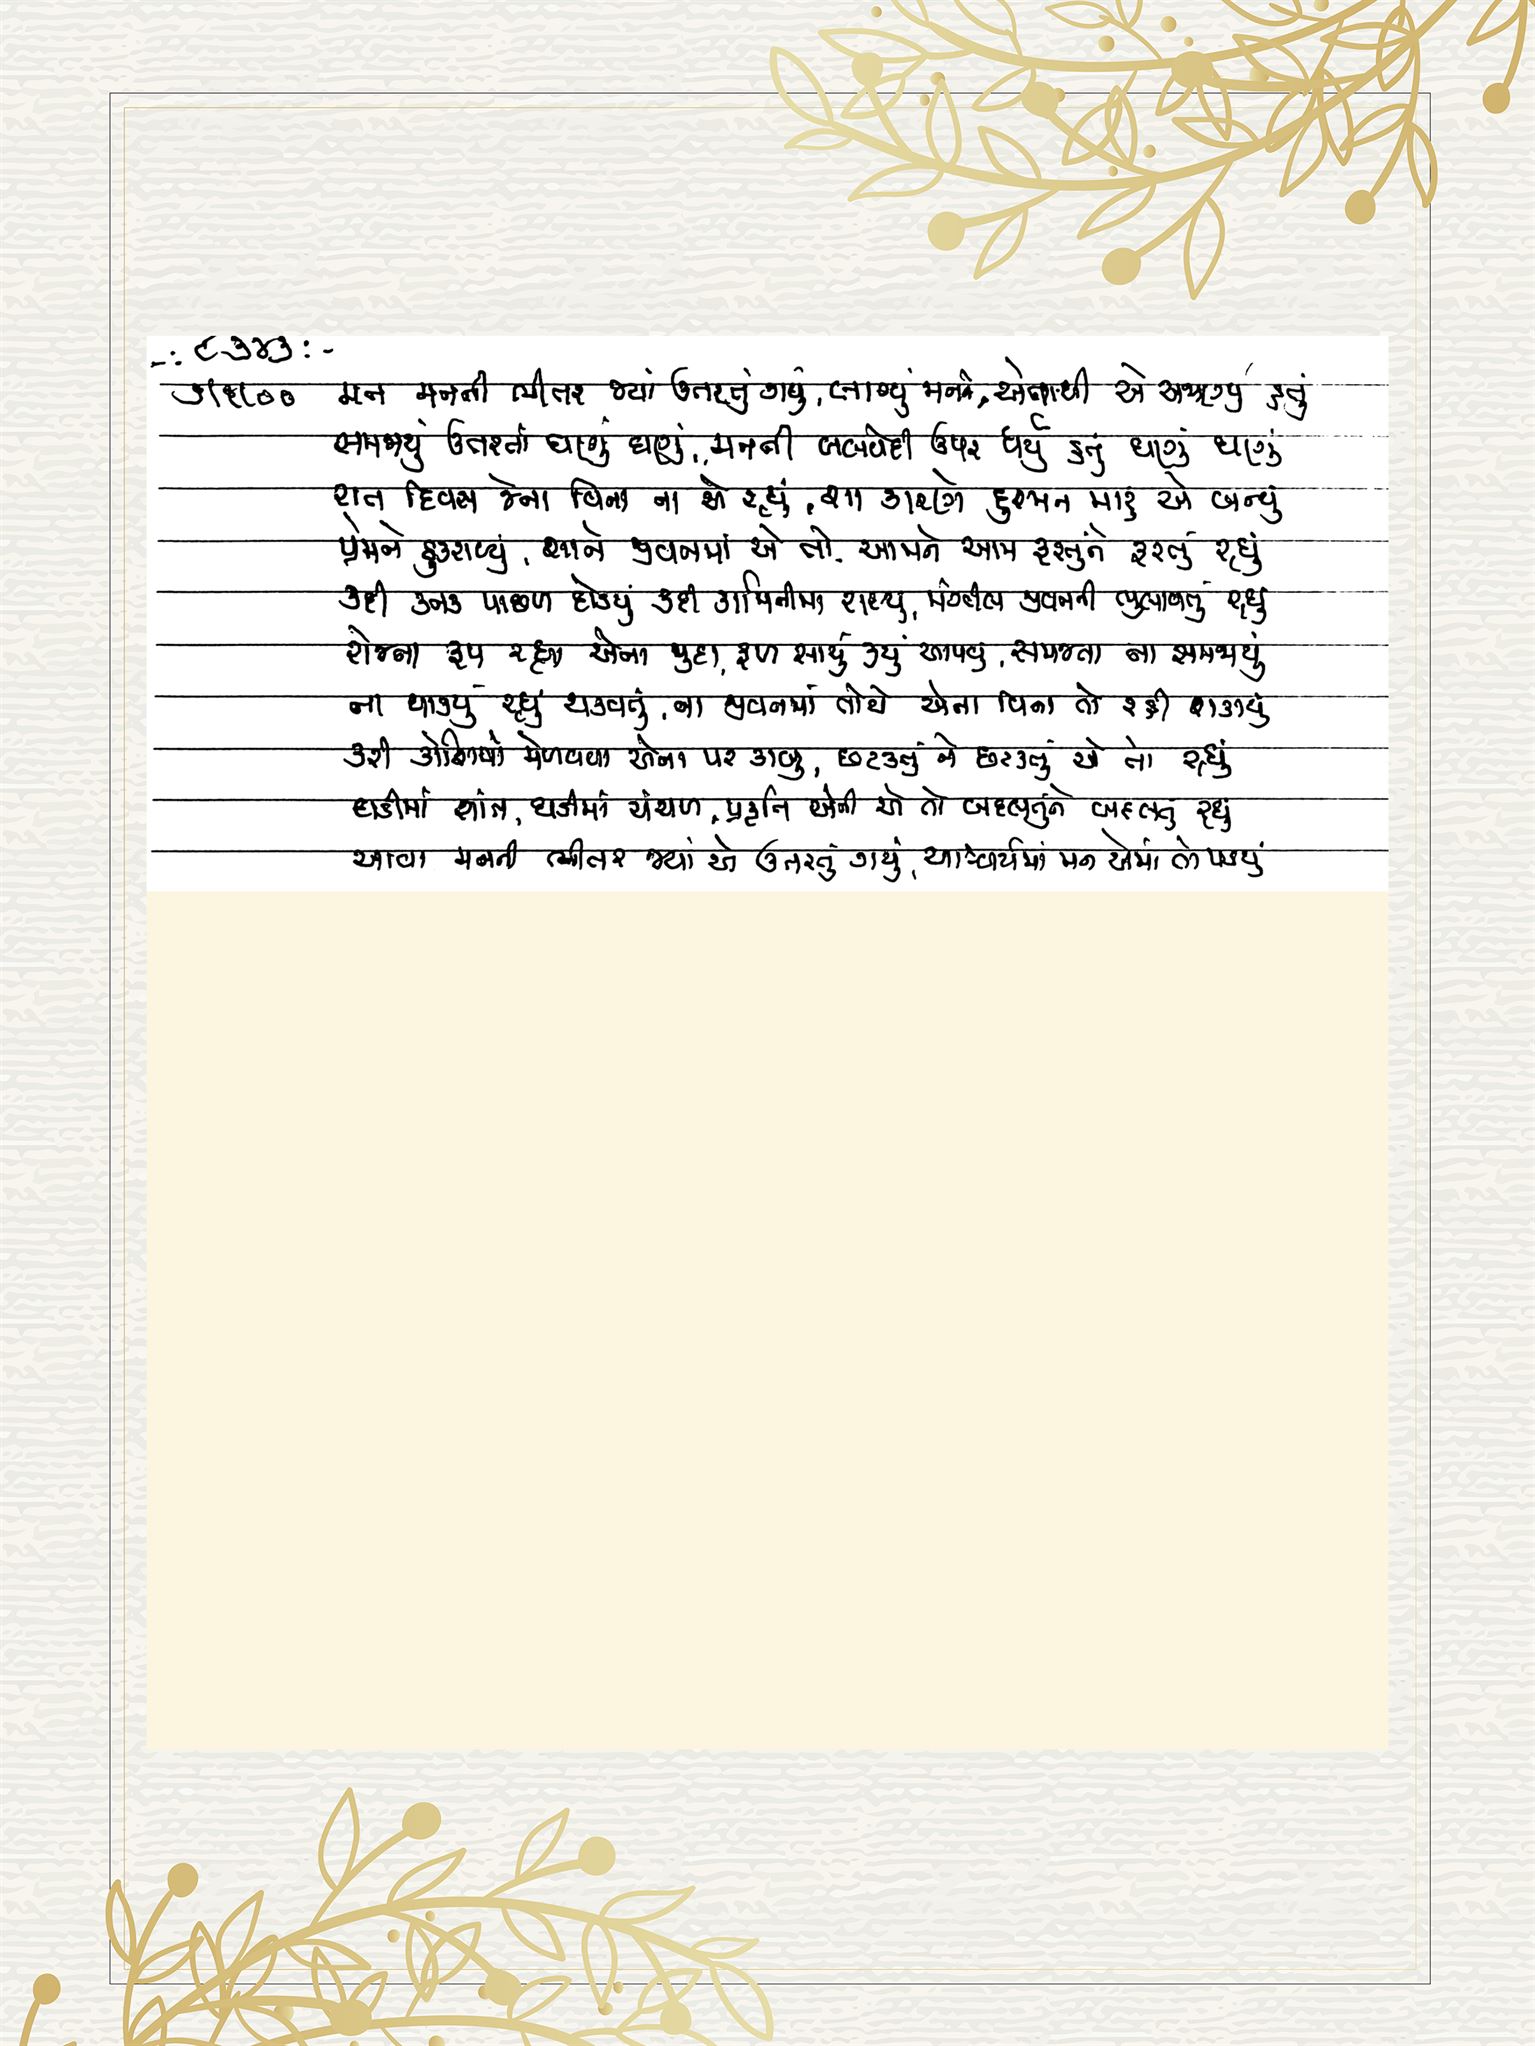 -: ૯૩૪૩ :-
મન મનની ભીતર જ્યાં ઉતરતું ગયું, લાગ્યું મનને, એનાથી એ અજાણ્યું હતું
સમજાયું ઉતરતાં ઘણું ઘણું, મનની બલવેદી ઉપર ધર્યું હતું ઘણું ઘણું
રાત દિવસ જેના વિના ના એ રહ્યું, શા કારણે દુશ્મન મારું એ બન્યું
પ્રેમને ઠુકરાવ્યું, શાને જીવનમાં એ તો આમને આમ ફરતુંને ફરતું રહ્યું
કદી કનક પાછળ દોડયું કદી કામિનીમાં રાચ્યું, મંઝીલ જીવનની ભુલાવતું રહ્યું
રોજના રૂપ રહ્યા એના જુદા, ફળ સાચું કયું આપવું, સમજતા ના સમજાયું
ના થાક્યું રહ્યું થકવતું, ના જીવનમાં તોયે એના વિના તો રહી શકાયું
કરી કોશિશો મેળવવા એના પર કાબુ, છટકતું ને છટકતું એ તો રહ્યું
ઘડીમાં શાંત, ઘડીમાં ચંચળ, પ્રકૃતિ એની એ તો બદલતુંને બદલતું રહ્યું
આવા મનની ભીતર જ્યાં એ ઉતરતું ગયું, આશ્ચર્યમાં મન એમાં તો પડયું